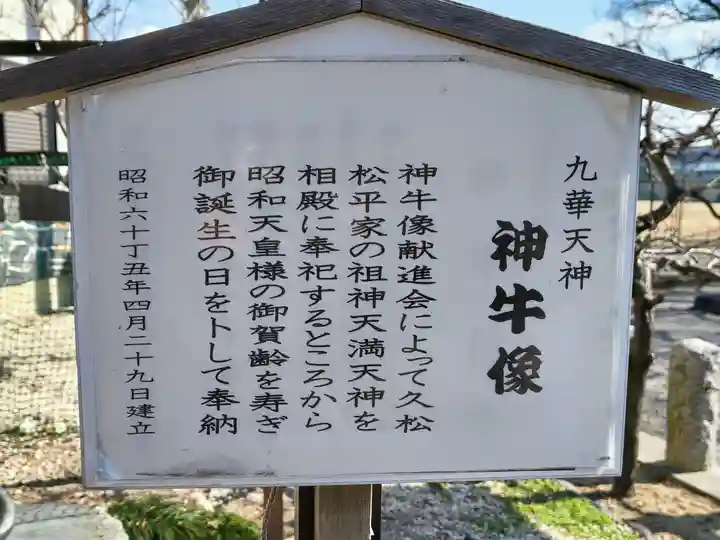 九華天神
神牛像
神牛像献進会によって久松
松平家の祖神天満天神を
相殿に奉祀するところから
昭和天皇様の御賀齢を寿ぎ
御誕生の日を卜して奉納
昭和六十丁丑年四月二十九日建立